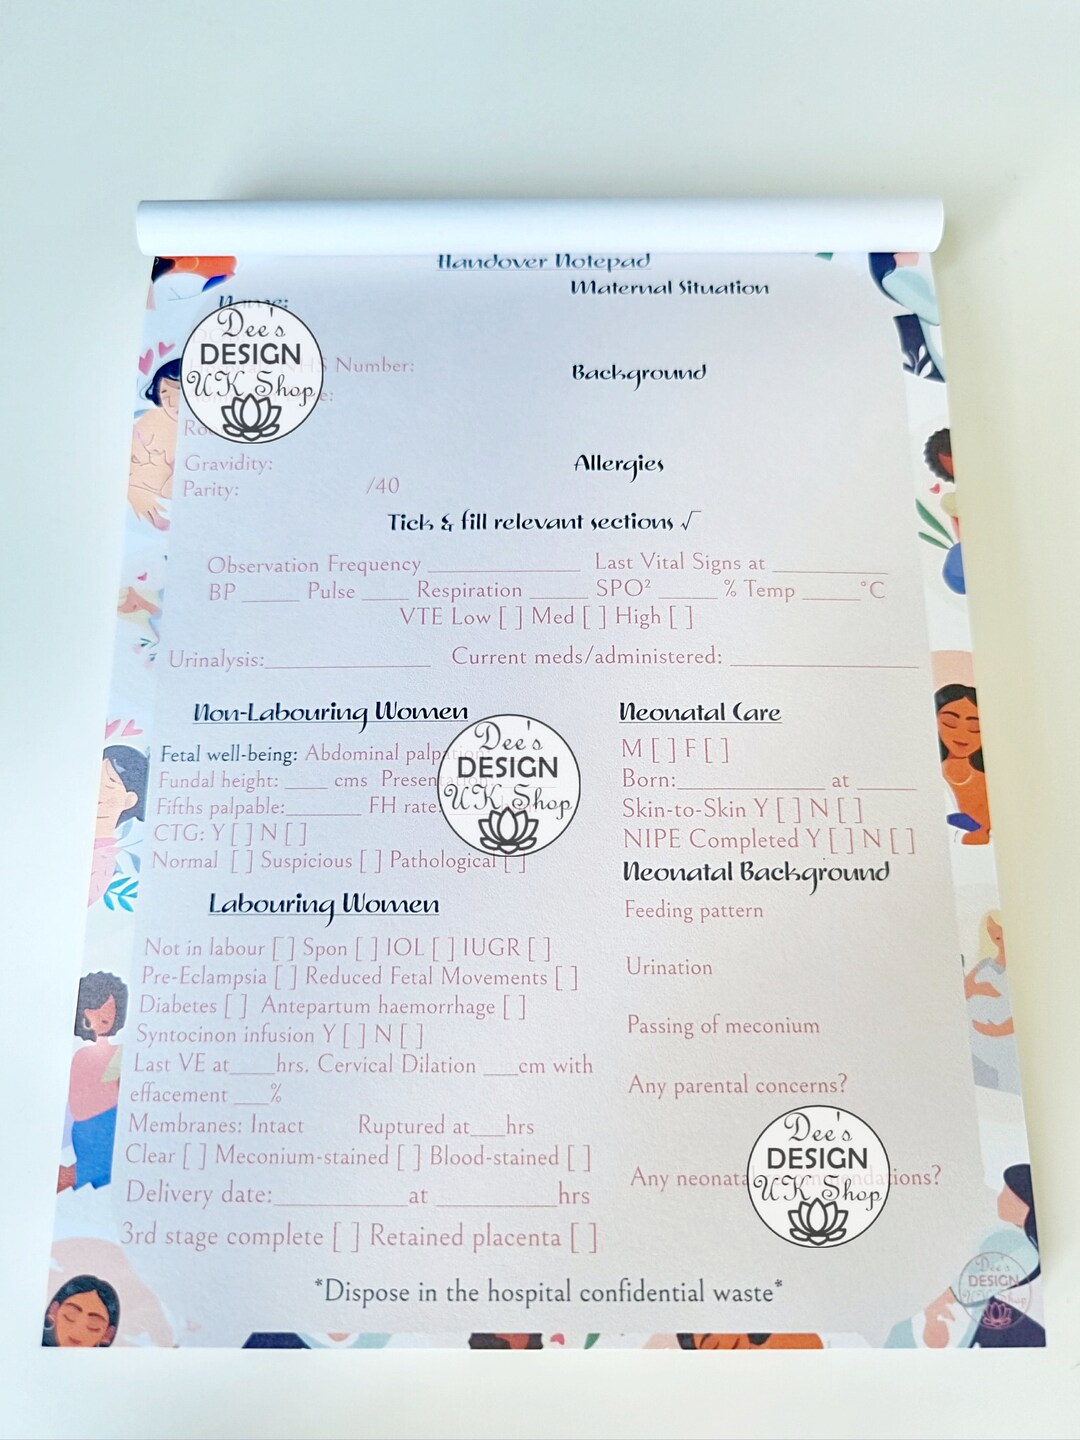 Handover Notepad
Name:
Maternal Situation
Number:
Background
Gravidity:
Allergies
Parity: /40
Tick & fill relevant sections √
Observation Frequency ____________ Last Vital Signs at __________
BP _____ Pulse ____ Respiration _____ SPO² _____ % Temp _____°C
VTE Low [ ] Med [ ] High [ ]
Urinalysis:______________ Current meds/administered: ________________
Non-Labouring Women
Fetal well-being: Abdominal palpation
Fundal height: ____ cms
Fifths palpable:_______ FH rate:
CTG: Y [ ] N [ ]
Normal [ ] Suspicious [ ] Pathological [ ]
Labouring Women
Not in labour [ ] Spon [ ] IOL [ ] IUGR [ ]
Pre-Eclampsia [ ] Reduced Fetal Movements [ ]
Diabetes [ ] Antepartum haemorrhage [ ]
Syntocinon infusion Y [ ] N [ ]
Last VE at____hrs. Cervical Dilation ___cm with
effacement ___%
Membranes: Intact Ruptured at___hrs
Clear [ ] Meconium-stained [ ] Blood-stained [ ]
Delivery date:___________at __________hrs
3rd stage complete [ ] Retained placenta [ ]
Neonatal Care
M [ ] F [ ]
Born:____________ at _____
Skin-to-Skin Y [ ] N [ ]
NIPE Completed Y [ ] N [ ]
Neonatal Background
Feeding pattern
Urination
Passing of meconium
Any parental concerns?
Any neonatal recommendations?
*Dispose in the hospital confidential waste*
Dee's
DESIGN
UK Shop
Dee's
DESIGN
UK Shop
Dee's
DESIGN
UK Shop
Dee's
DESIGN
UK Shop